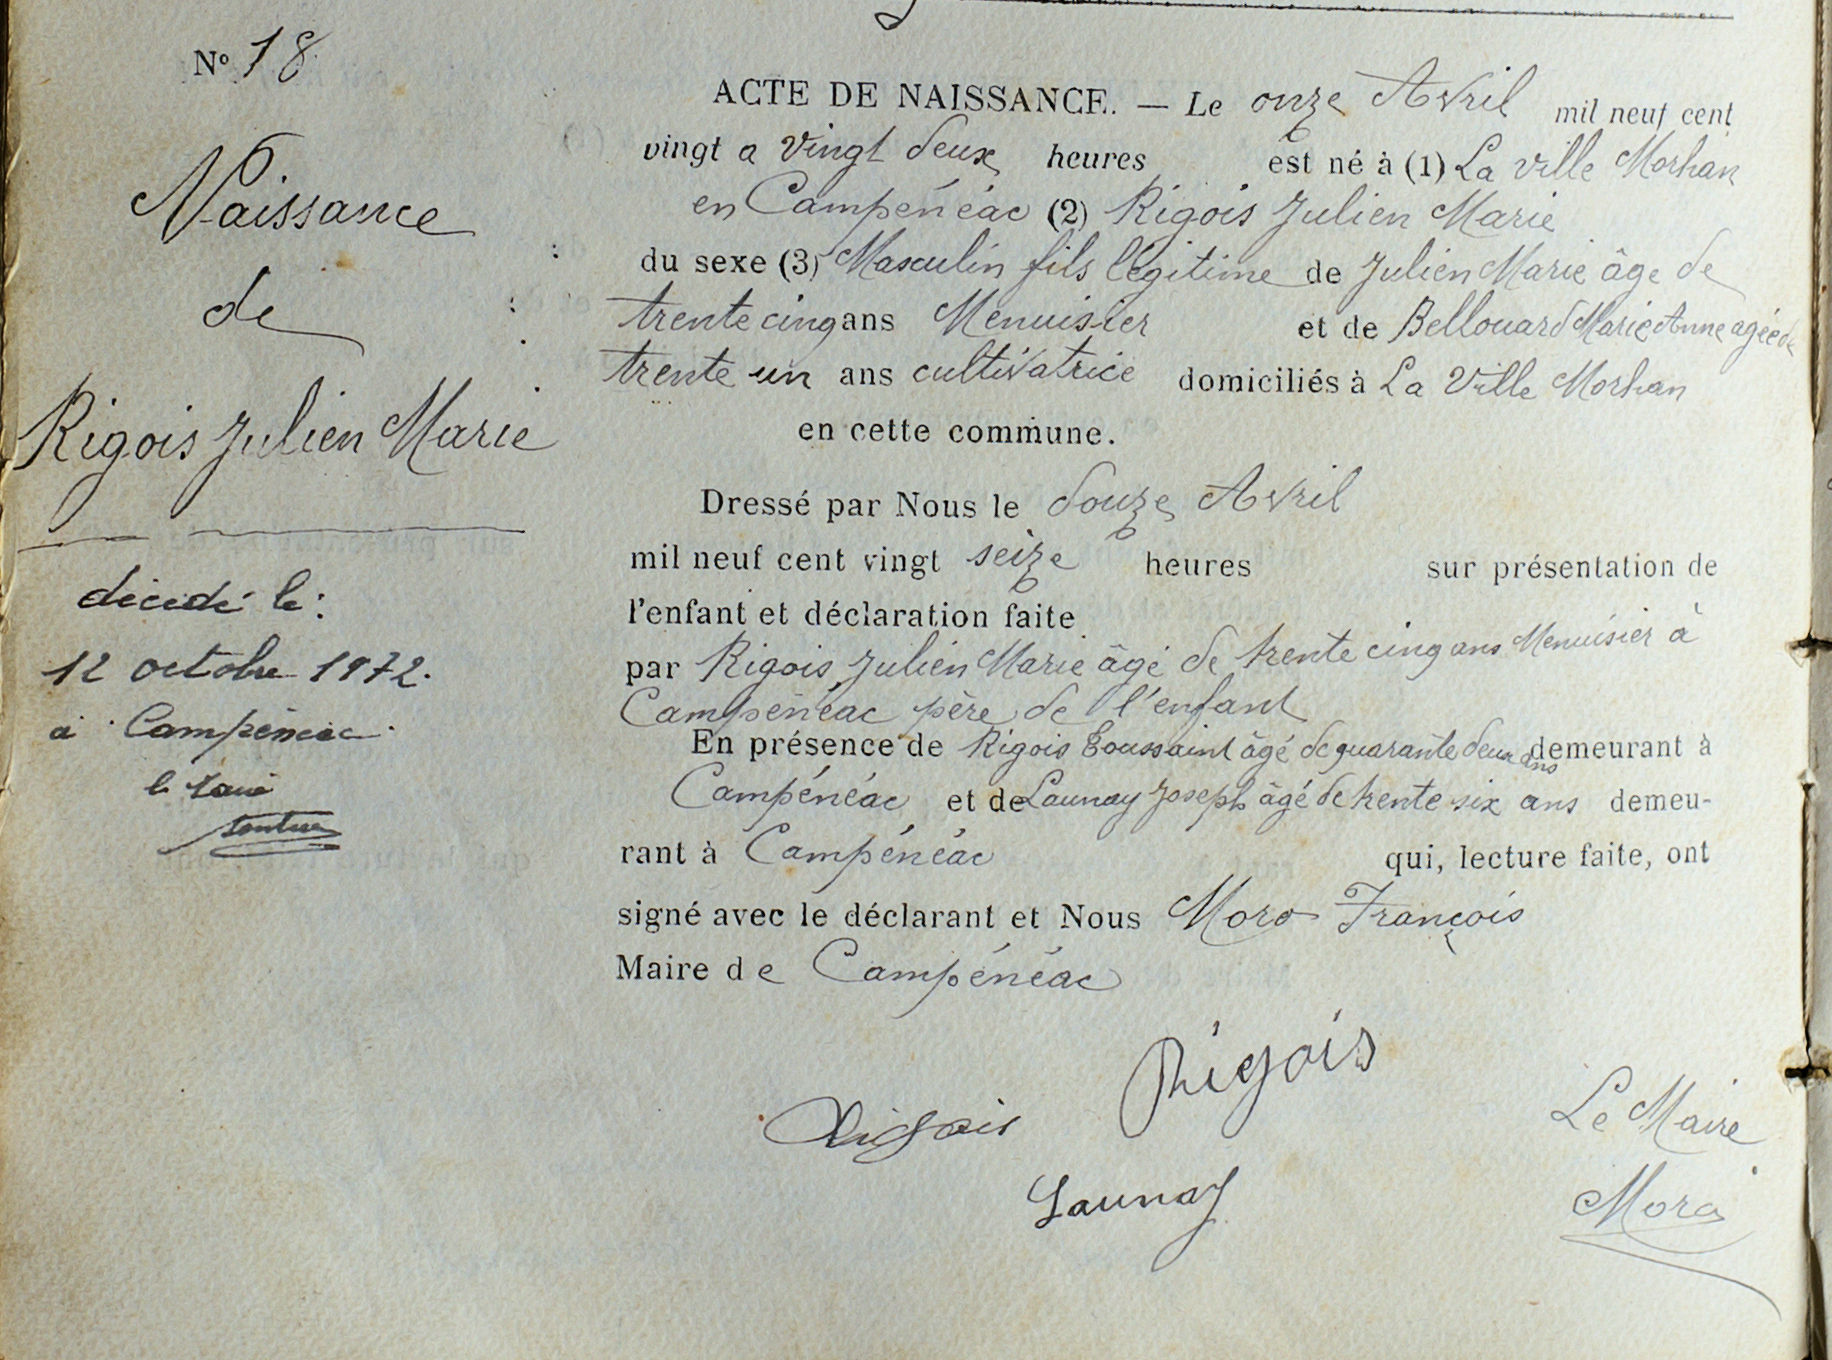 N° 18
Naissance
de
Rigois Julien Marie
décédé le :
12 octobre 1972.
à Campénéac
le Maire
ACTE DE NAISSANCE. — Le onze Avril mil neuf cent
vingt a vingt deux heures est né à (1) La ville Morhan
en Campénéac (2) Rigois Julien Marie
du sexe (3) Masculin fils légitime de Julien Marie âge de
trente cinq ans Menuisier et de Bellouard Marie Anne agée de
trente un ans cultivatrice domiciliés à La Ville Morhan
en cette commune.
Dressé par Nous le douze Avril
mil neuf cent vingt seize heures sur présentation de
l'enfant et déclaration faite
par Rigois Julien Marie âgé de trente cinq ans Menuisier à
Campénéac père de l'enfant
En présence de Rigois Toussaint âgé de quarante deux ans demeurant à
Campénéac et de Launay Joseph âgé de trente six ans demeu-
rant à Campénéac qui, lecture faite, ont
signé avec le déclarant et Nous Moro François
Maire de Campénéac
Rigois
Rigois
Launay
Le Maire
Moro